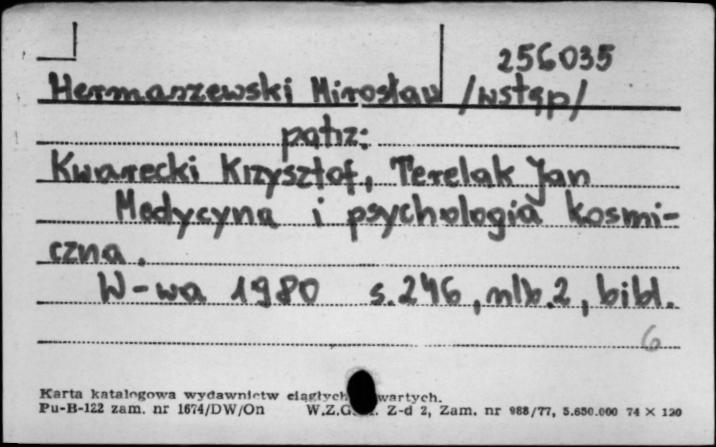 256035
Hermaszewski Mirosław /wstęp/
patrz:
Kwarecki Krzysztof, Terelak Jan
Medycyna i psychologia kosmi-
czna.
W-wa 1980 s.246, nlb.2, bibl.
6
Karta katalogowa wydawnictw ciągłych wartych.
Pu-B-122 zam. nr 1674/DW/On W.Z.G. Z-d 2, Zam. nr 988/77, 5.650.000 74 × 120